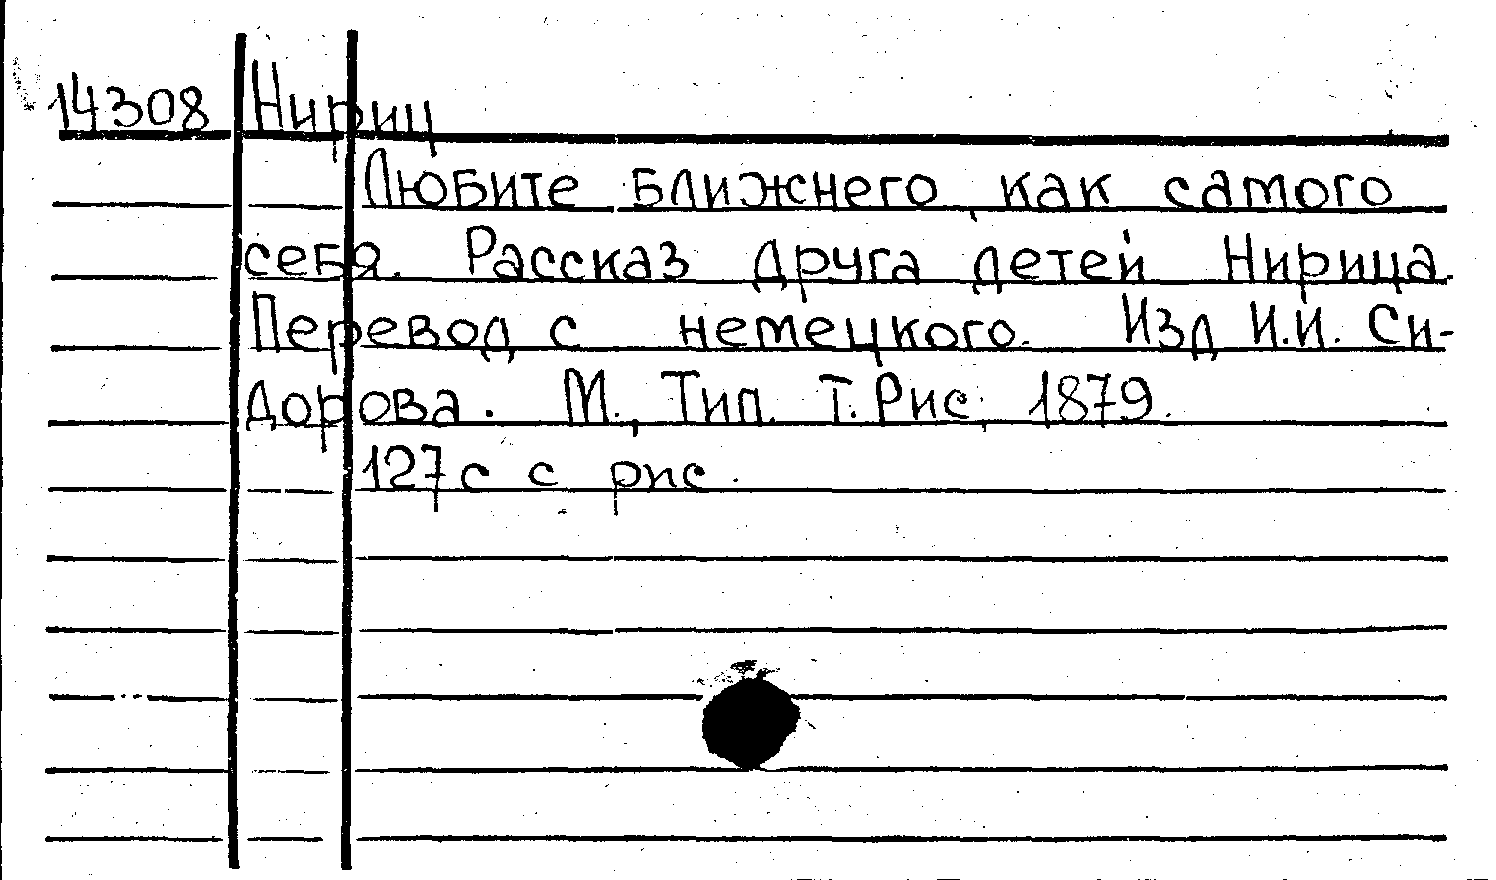 14308 Нириц
Любите ближнего, как самого
себя. Рассказ друга детей Нирица.
Перевод с немецкого. Изд И.И. Си-
дорова. М., Тип. Т. Рис, 1879.
127с с рис.